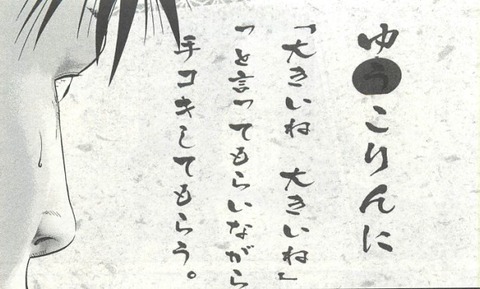 ゆうこりんに
「大きいね　大きいね」
っと言ってもらいながら
手コキしてもらう。